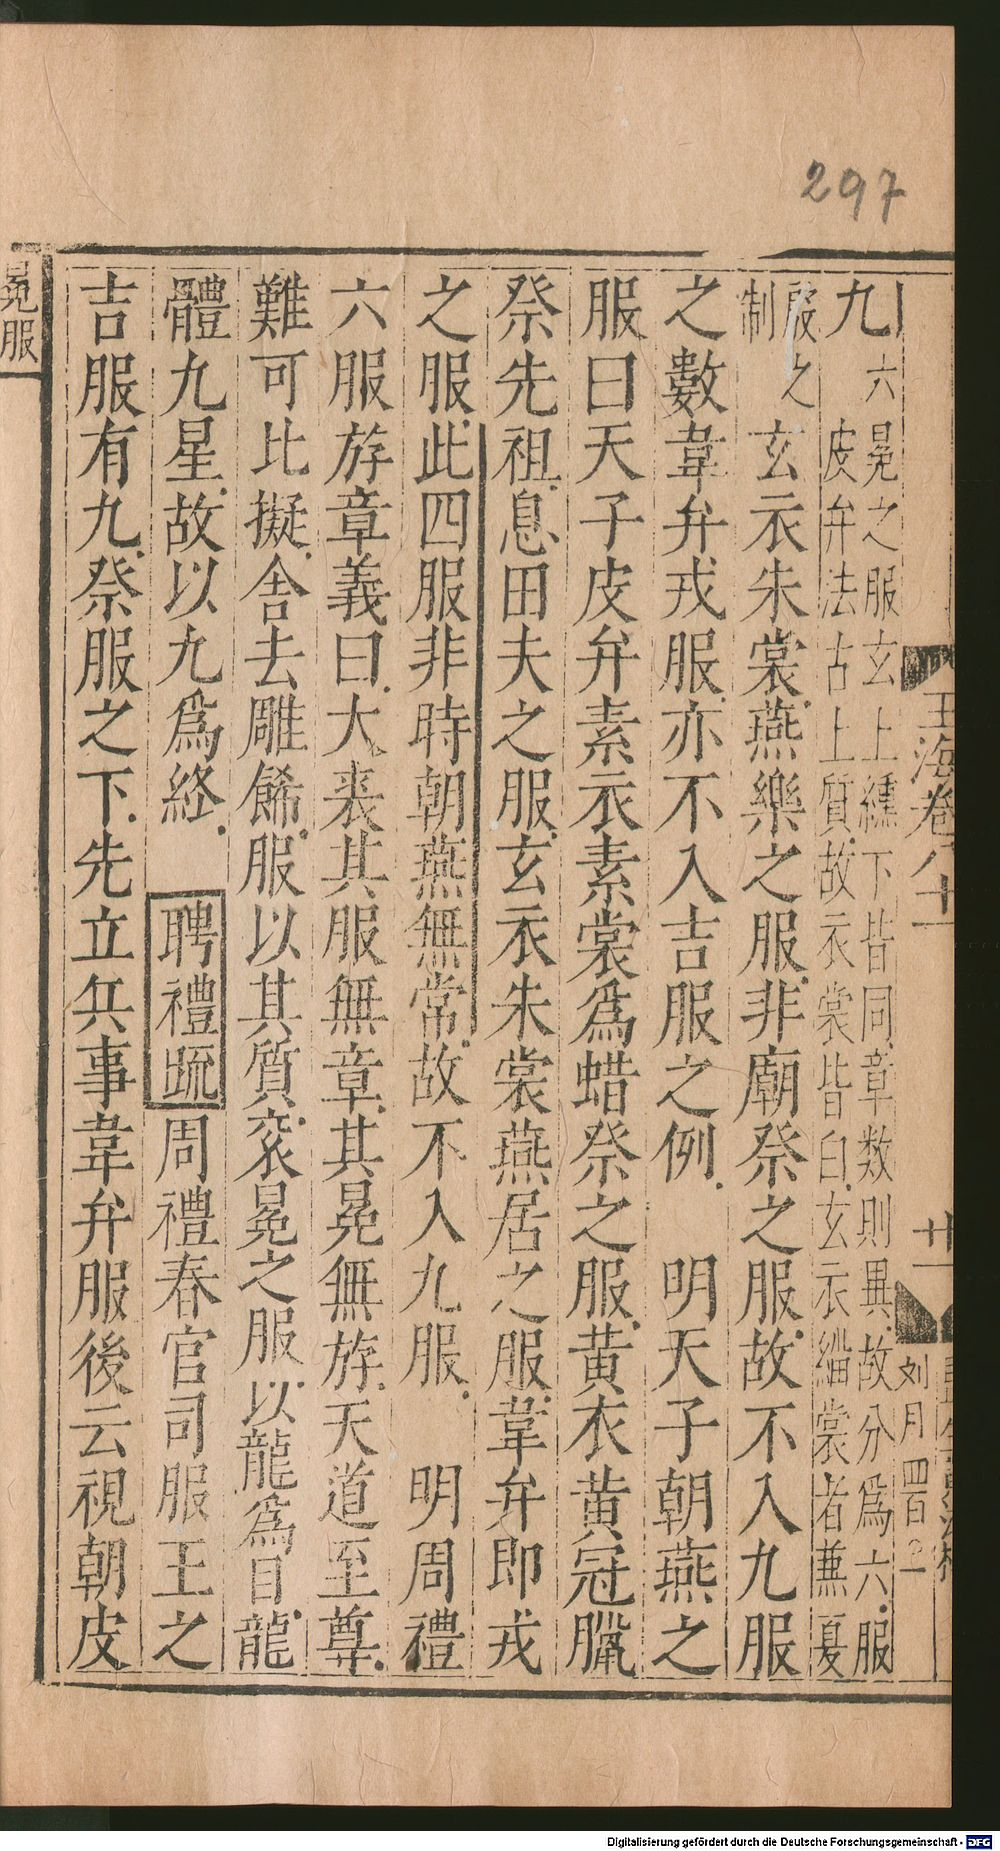 297
九六冕之服玄上纁下皆同章数則異故分爲六服
皮弁法古上質故衣裳皆白玄衣緇裳者蕪夏
服之
制玄衣朱裳燕樂之服非廟祭之服故不入九服
之數韋弁戎服亦不入吉服之例 明天子朝燕之
服曰天子皮弁素衣素裳爲蜡祭之服黄衣黄冠臘
祭先祖息田夫之服玄衣朱裳燕居之服韋弁即戎
之服此四服非時朝燕無常故不入九服 明周禮
六服斿章義曰大裘其服無章其冕無斿天道至尊
難可比擬舎去雕餙服以其質衮冕之服以龍爲目龍
體九星故以九爲終 聘禮疏周禮春官司服王之
吉服有九祭服之下先立兵事韋弁服後云視朝皮
冕服
玉海卷八十一
廿一
刘月 四百
Digitalisierung gefördert durch die Deutsche Forschungsgemeinschaft - DFG